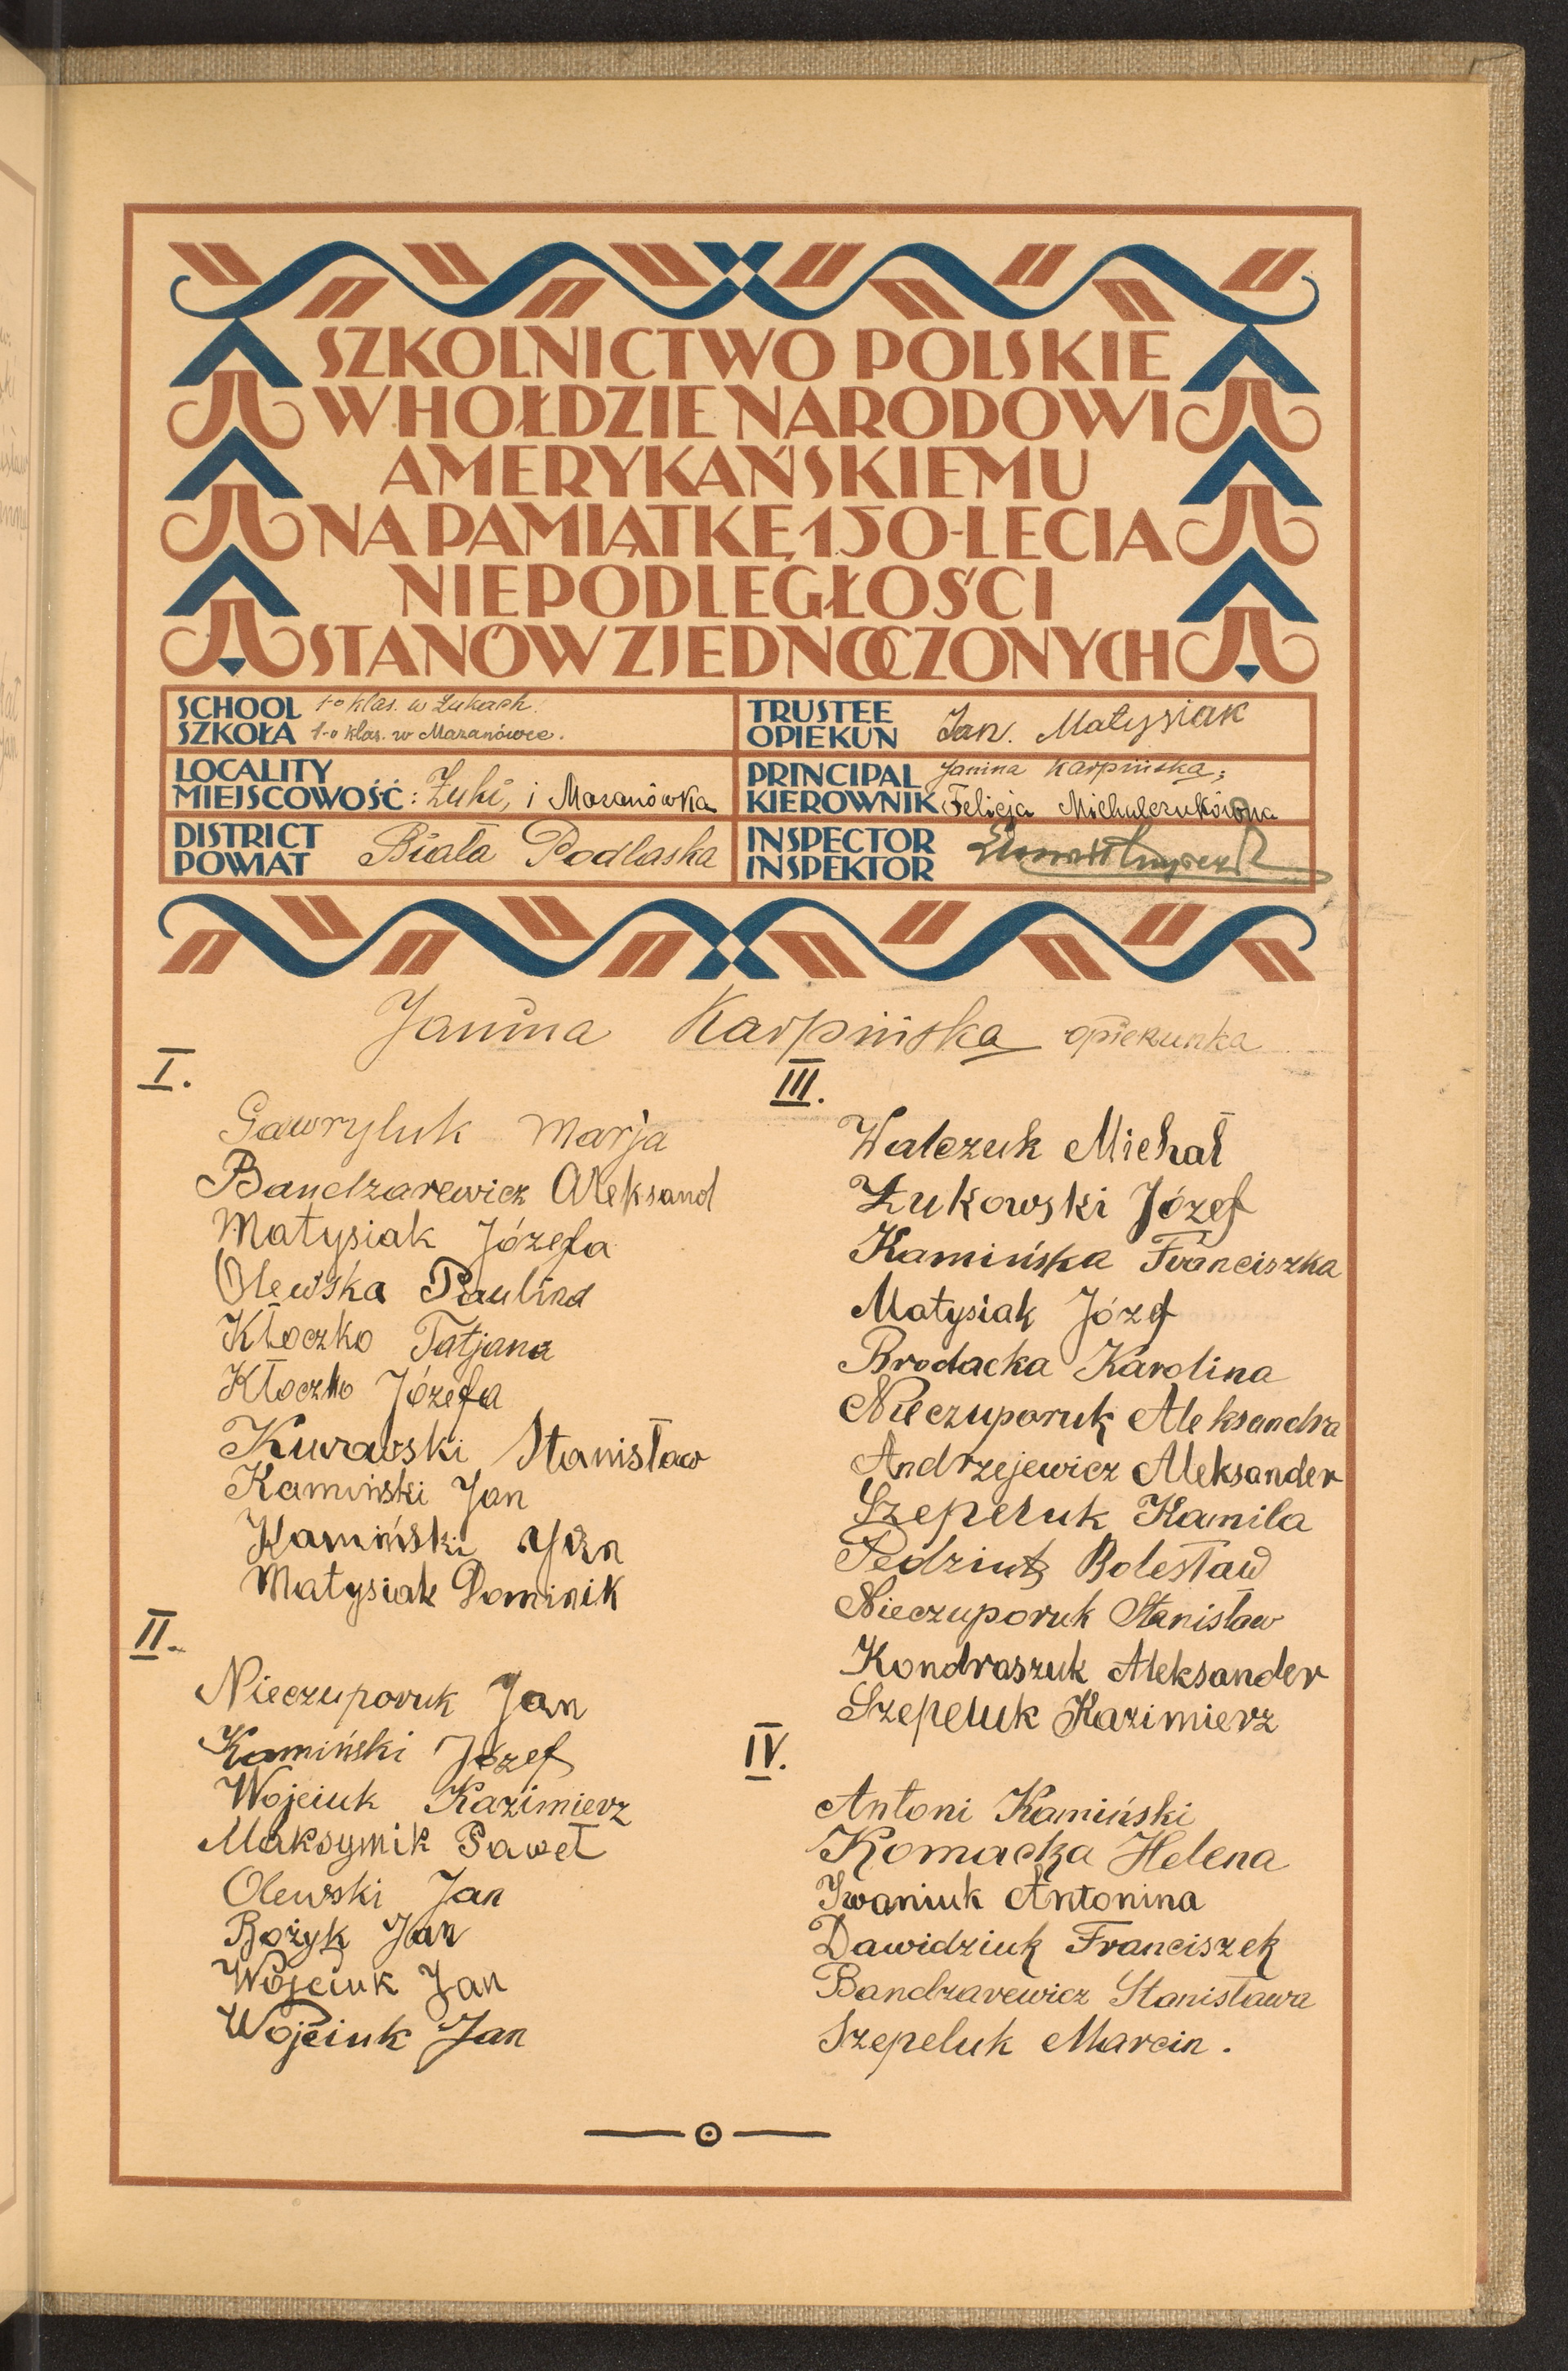 SZKOLNICTWO POLSKIE
W HOŁDZIE NARODOWI
AMERYKAŃSKIEMU
NA PAMIĄTKĘ 150-LECIA
NIEPODLEGŁOŚCI
STANÓW ZJEDNOCZONYCH
SCHOOL 1-o klas. w Łukach.
SZKOŁA 1-o klas. w Mazanówce.
TRUSTEE
OPIEKUN Jan. Matysiak
LOCALITY
MIEJSCOWOŚĆ: Łuki, i Mazanówka
PRINCIPAL Janina Karpińska;
KIEROWNIK Felicja Michalczukówna
DISTRICT
POWIAT Biała Podlaska
INSPECTOR
INSPEKTOR
Janina Karpińska opiekunka
I.
Gawryluk Marja
Bandzarewicz Aleksand
Matysiak Józefa
Olewska Paulina
Kłoczko Tatjana
Kłoczko Józefa
Kurawski Stanisław
Kamiński Jan
Kamiński Jan
Matysiak Dominik
II.
Nieczuporuk Jan
Kamiński Józef
Wojciuk Kazimierz
Maksymik Paweł
Olewski Jan
Bożyk Jan
Wojciuk Jan
Wojciuk Jan
III.
Walczuk Michał
Łukowski Józef
Kamińska Franciszka
Matysiak Józef
Brodacka Karolina
Nieczuporuk Aleksandra
Andrzejewicz Aleksander
Szepeluk Kamila
Bolesław
Nieczuporuk Stanisław
Kondraszuk Aleksander
Szepeluk Kazimierz
IV.
Antoni Kamiński
Komacka Helena
Iwaniuk Antonina
Dawidziuk Franciszek
Bandzarewicz Stanisława
Szepeluk Marcin.